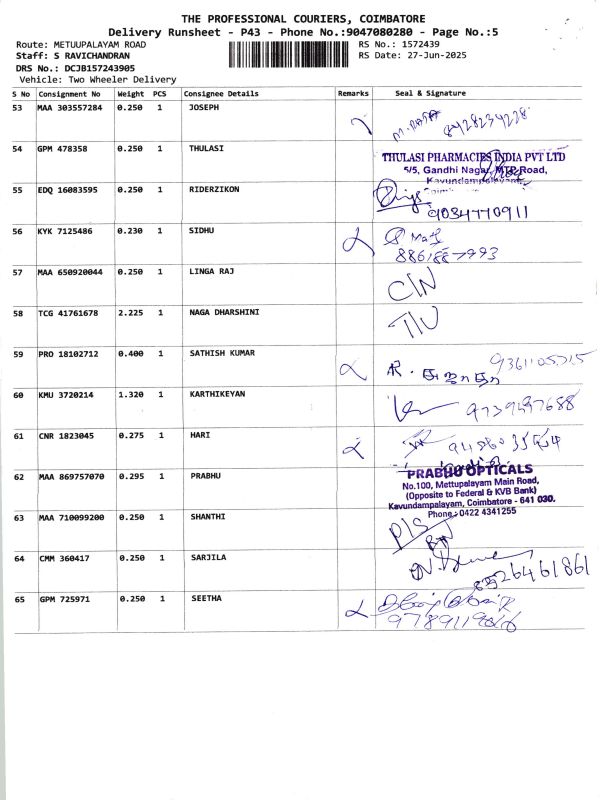 THE PROFESSIONAL COURIERS, COIMBATORE
Delivery Runsheet - P43 - Phone No.:9047080280 - Page No.:5
Route: METUUPALAYAM ROAD RS No.: 1572439
Staff: S RAVICHANDRAN RS Date: 27-Jun-2025
DRS No.: DCJB157243905
Vehicle: Two Wheeler Delivery
S No Consignment No Weight PCS Consignee Details Remarks Seal & Signature
53 MAA 303557284 0.250 1 JOSEPH
8428234228
54 GPM 478358 0.250 1 THULASI
THULASI PHARMACIES INDIA PVT LTD
5/5, Gandhi Nagar, MTP Road,
Kavundampalayam,
55 EDQ 16083595 0.250 1 RIDERZIKON
9034770911
56 KYK 7125486 0.230 1 SIDHU
8861887993
57 MAA 650920044 0.250 1 LINGA RAJ C/N
58 TCG 41761678 2.225 1 NAGA DHARSHINI
59 PRO 18102712 0.400 1 SATHISH KUMAR
60 KMU 3720214 1.320 1 KARTHIKEYAN 9739497688
61 CNR 1823045 0.275 1 HARI
62 MAA 869757070 0.295 1 PRABHU
PRABHU OPTICALS
No.100, Mettupalayam Main Road,
(Opposite to Federal & KVB Bank)
Kavundampalayam, Coimbatore - 641 030.
Phone : 0422 4341255
63 MAA 710099200 0.250 1 SHANTHI
64 CMM 360417 0.250 1 SARJILA
65 GPM 725971 0.250 1 SEETHA